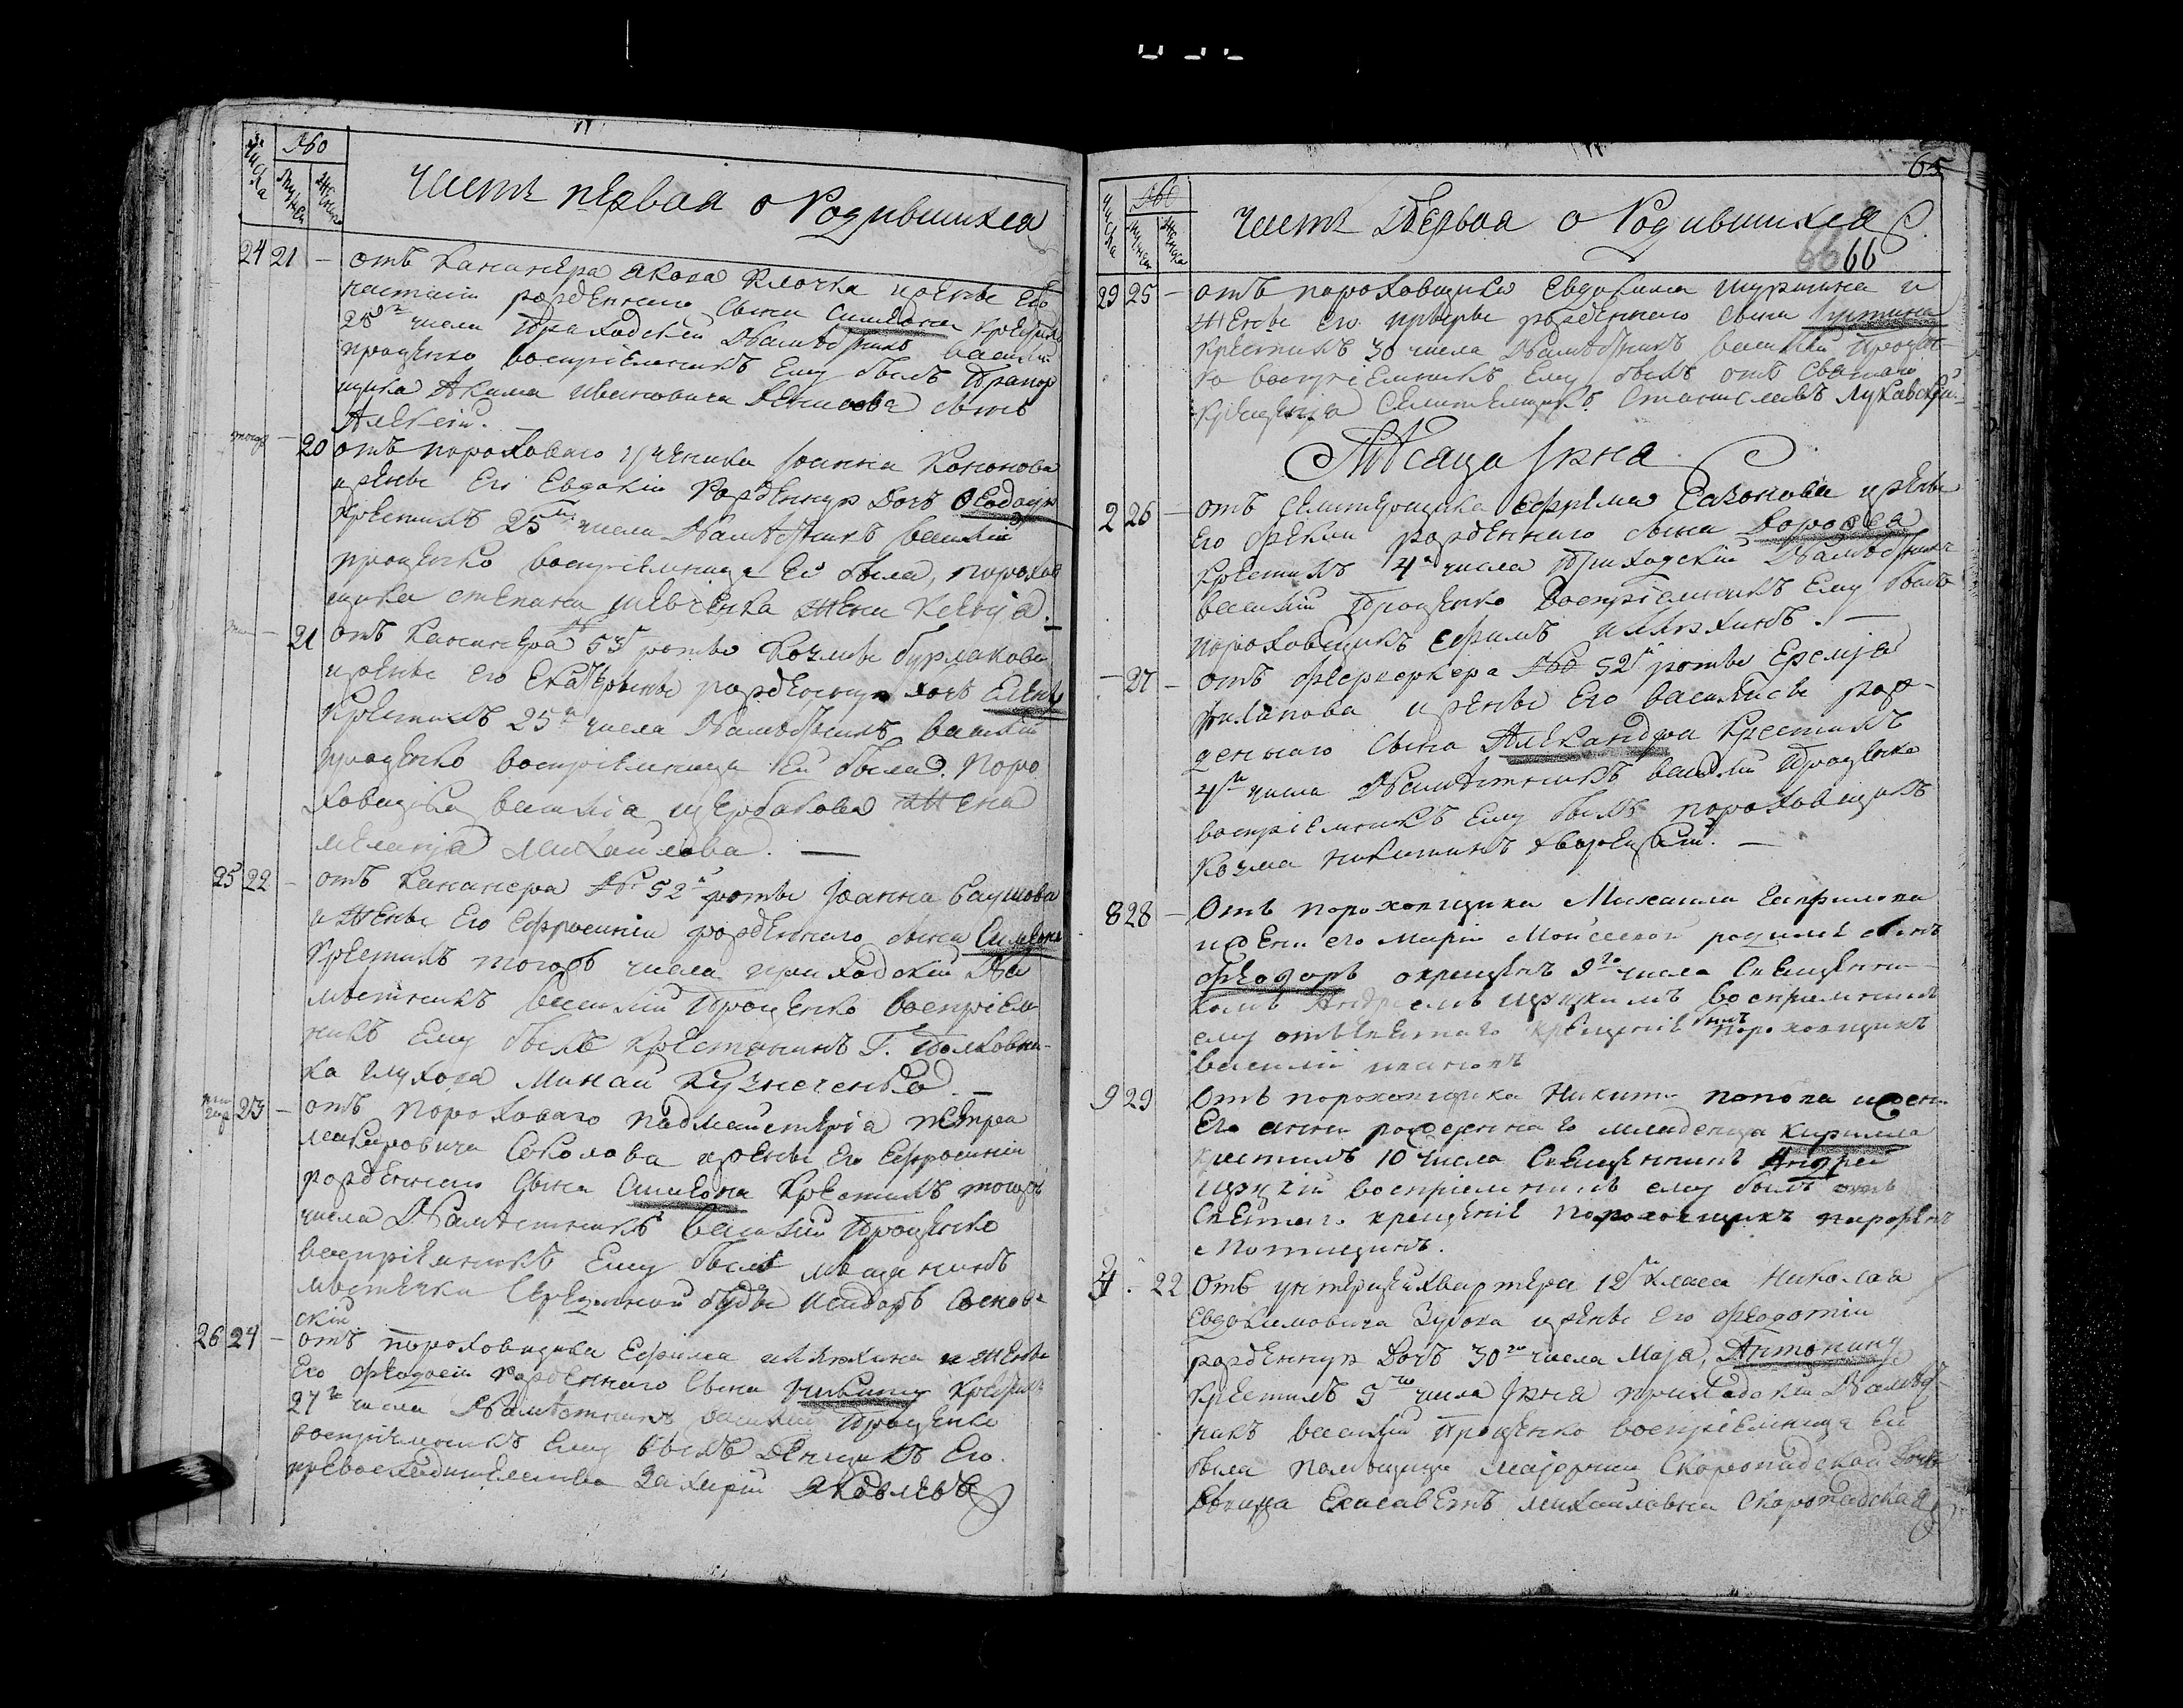 Числа
№
Мужеска
Женска
Часть первая о Родившихся
24 21 — отъ Канонера Якова Клочка и женъ Его
настасіи рожденнаго сына Симеона Крестилъ
25го числа Приходскій Намѣстникъ Василій
Проценко воспріемникъ Ему былъ Прапор
щика Акима Ивановича Денисова сынъ
Алексій.
тогож — 20 отъ пороховаго ученика Іоанна Кононова
и женъ Его Евдокіи Рожденную дочь Феодосію
Крестилъ 25го числа Намѣстникъ Василій
Проценко воспріемница Ей была, порохов
щика степана шевченка жена Ксенія.
— 21 отъ Канонера № 53й роты Козмы бурлакова
и женъ Его Екатерины рожденную дочь Елену
Крестилъ 25го числа Намѣстникъ Василій
Проценко воспріемница Ей была поро
ховщика василіа щербакова жена
меланія Михайлова. —
25 22 — отъ Канонера № 52й роты Іоанна
и женъ Его Ефросиніи рожденнаго сына Симеона
Крестилъ тогожъ числа приходскій На
мѣстникъ василій Проценко воспріем
никъ Ему былъ Крестянинъ Г. Полковни
ка Глухова Минай Кузнеченко —
23 — отъ Пороховаго Падмайстеріа петра
макаровича Соколова и женъ Его Ефросиніи
рожденнаго сына Симеона Крестилъ тогожъ
числа Намѣстникъ василій Проценко
воспріемникъ Ему былъ мѣщанинъ
мѣстечка будъ исидоръ Соснов
скій
26 24 — отъ пороховщика Ефима илюхина и женъ
Его Феодосіи рожденнаго сына Никиту Крестилъ
27го числа Намѣстникъ василій Проценко
воспріемникъ Ему былъ Денщикъ Его
превосходительства Захарій Яковлевъ
65
Числа
№
Мужеска
Женска
Часть Первая о Родившихся
66 66
29 25 — отъ пороховщика Евдокима Шуршина и
женъ Его рожденнаго сына Іустина
Крестилъ 30 числа Намѣстникъ василій Процен
ко воспріемникъ Ему былъ отъ Святаго
Крещенія Селитренщикъ Станиславъ Лукавскій
Мѣсяца Іюня
2 26 — отъ Селитренщика Ефрема Сазонова и женъ
Его Феклы рожденнаго сына
Крестилъ 4го числа Приходскій Намѣстникъ
василій Проценко воспріемникъ Ему былъ
пороховщикъ Ефимъ илюхинъ. —
— 27 — отъ Феерверкера № 52й роты Еремія
филипова и женъ Его василисы рож-
деннаго сына Александра Крестилъ
4го числа Намѣстникъ василій Проценко
воспріемникъ Ему былъ пороховщикъ
Козма никитинъ дворецкій. —
8 28 — Отъ пороховщика Михаила Гаврилова
и жены его Маріи Моисеевой родился сынъ
Феодоръ окрещенъ 9го числа Священни
комъ Андреемъ воспріемникъ
ему отъ святаго крещенія былъ пороховщикъ
василій ивановъ
9 29 Отъ пороховщика Никиты Попова и жены
Его анны рожденнаго младенца Кирилла
крестилъ 10 числа Священникъ Андрей
воспріемникъ ему былъ отъ
Святаго крещенія пороховщикъ парфенъ
Потницинъ.
22 Отъ унтерцейхвартера 12го класа Николая
Евдокимовича Зубова и женъ Его Феодотіи
рожденную Дочь 30го числа Маја, Антонину
Крестилъ 5го числа Іюня приходскій Намѣст
никъ василій Проценко воспріемница Ей
была помѣщица маіорши Скоропадской дочь
дѣвица Елисаветъ михайловна Скоропадская